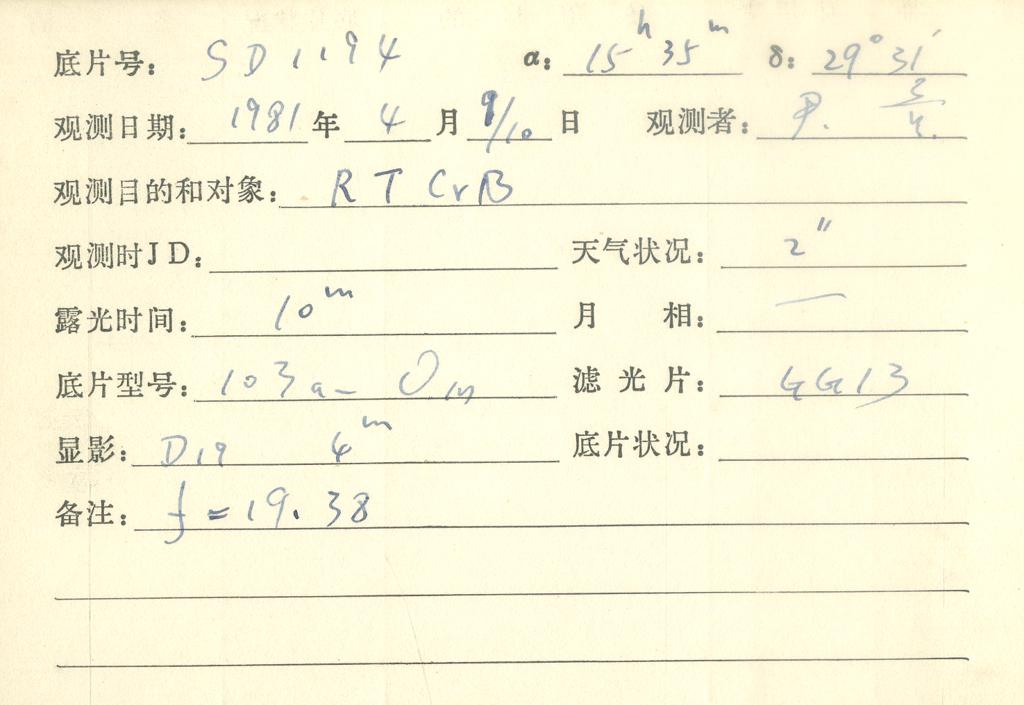 底片号: SD1194 α: 15h 35m δ: 29° 31′
观测日期: 1981 年 4 月 9/10 日 观测者:
观测目的和对象: RT CrB
观测时JD: 天气状况: 2″
露光时间: 10m 月 相: 一
底片型号: 103a-O 滤光片: GG13
显影: D19 4m 底片状况:
备注: f=19.38